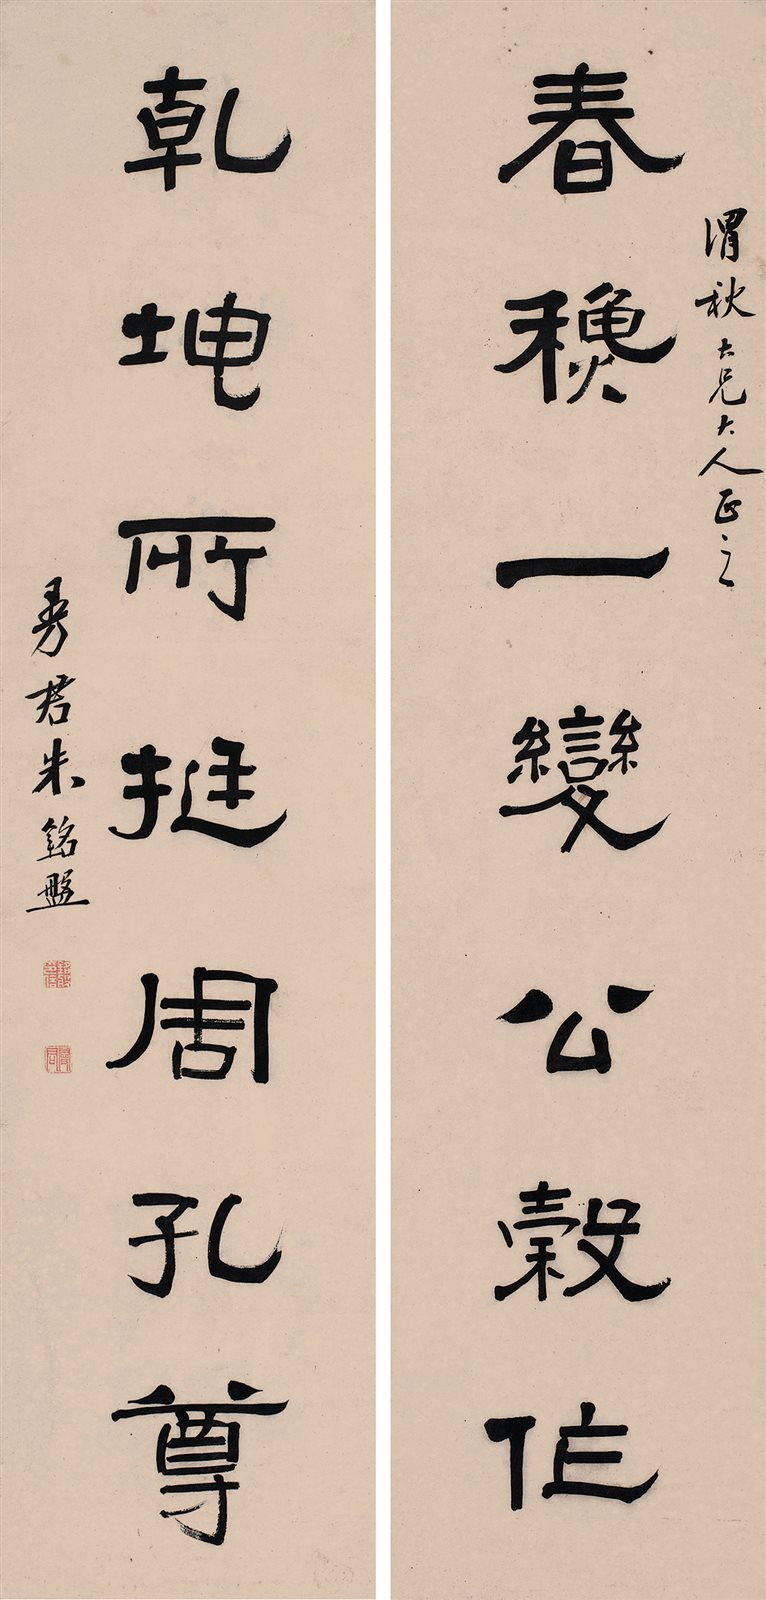 春龝一變公穀作
渭秋大兄大人正之
乾坤所挺周孔尊
曼君朱銘盤